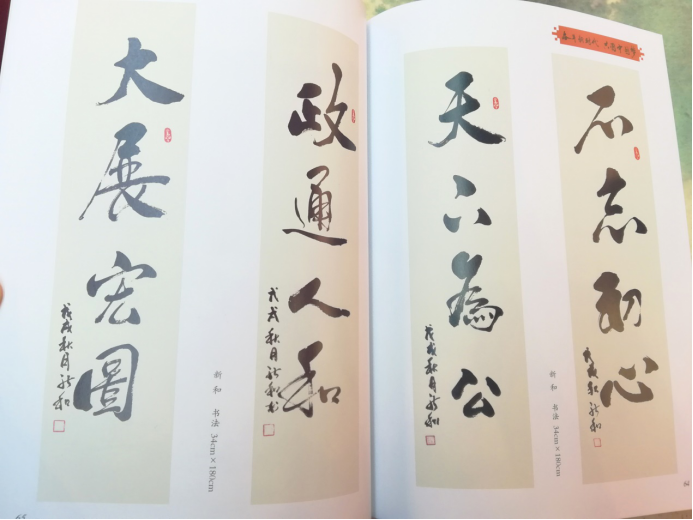 大展宏圖
戊戌秋月新和
政通人和
戊戌秋月新和书
新和 书法 34cm×180cm
天下為公
戊戌秋月新和
不忘初心
戊戌秋新和
新和 书法 34cm×180cm